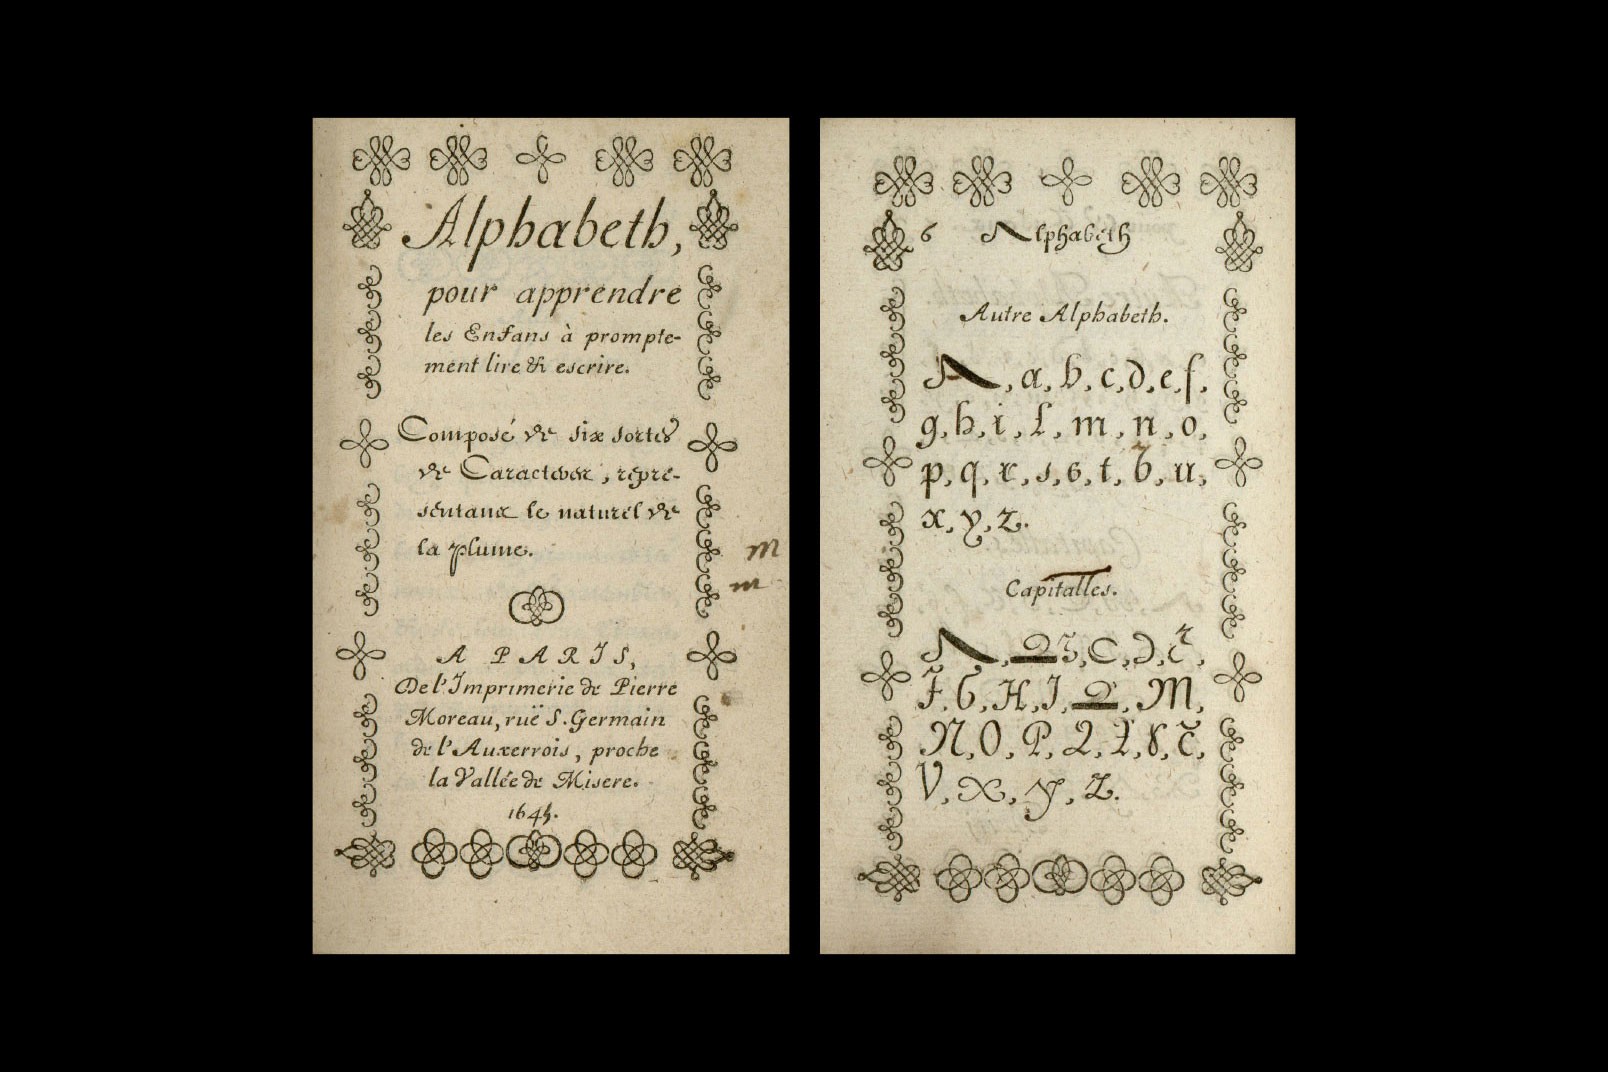 Alphabeth,
pour apprendre
les Enfans à prompte-
ment lire & escrire.
Composé de six sortes
de Caracteres, repre-
sentans le naturel de
la plume.
A PARIS,
De l'Imprimerie de Pierre
Moreau, ruë S. Germain
de l'Auxerrois, proche
la Vallée de Misere.
164
m
m
6 Alphabeth
Autre Alphabeth.
A, a, b, c, d, e, f,
g, h, i, l, m, n, o,
p, q, r, s, s, t, v, u,
x, y, z.
Capitalles.
A, B, C, D, E,
F, G, H, I, L, M,
N, O, P, Q, R, S, T,
V, X, y, Z.